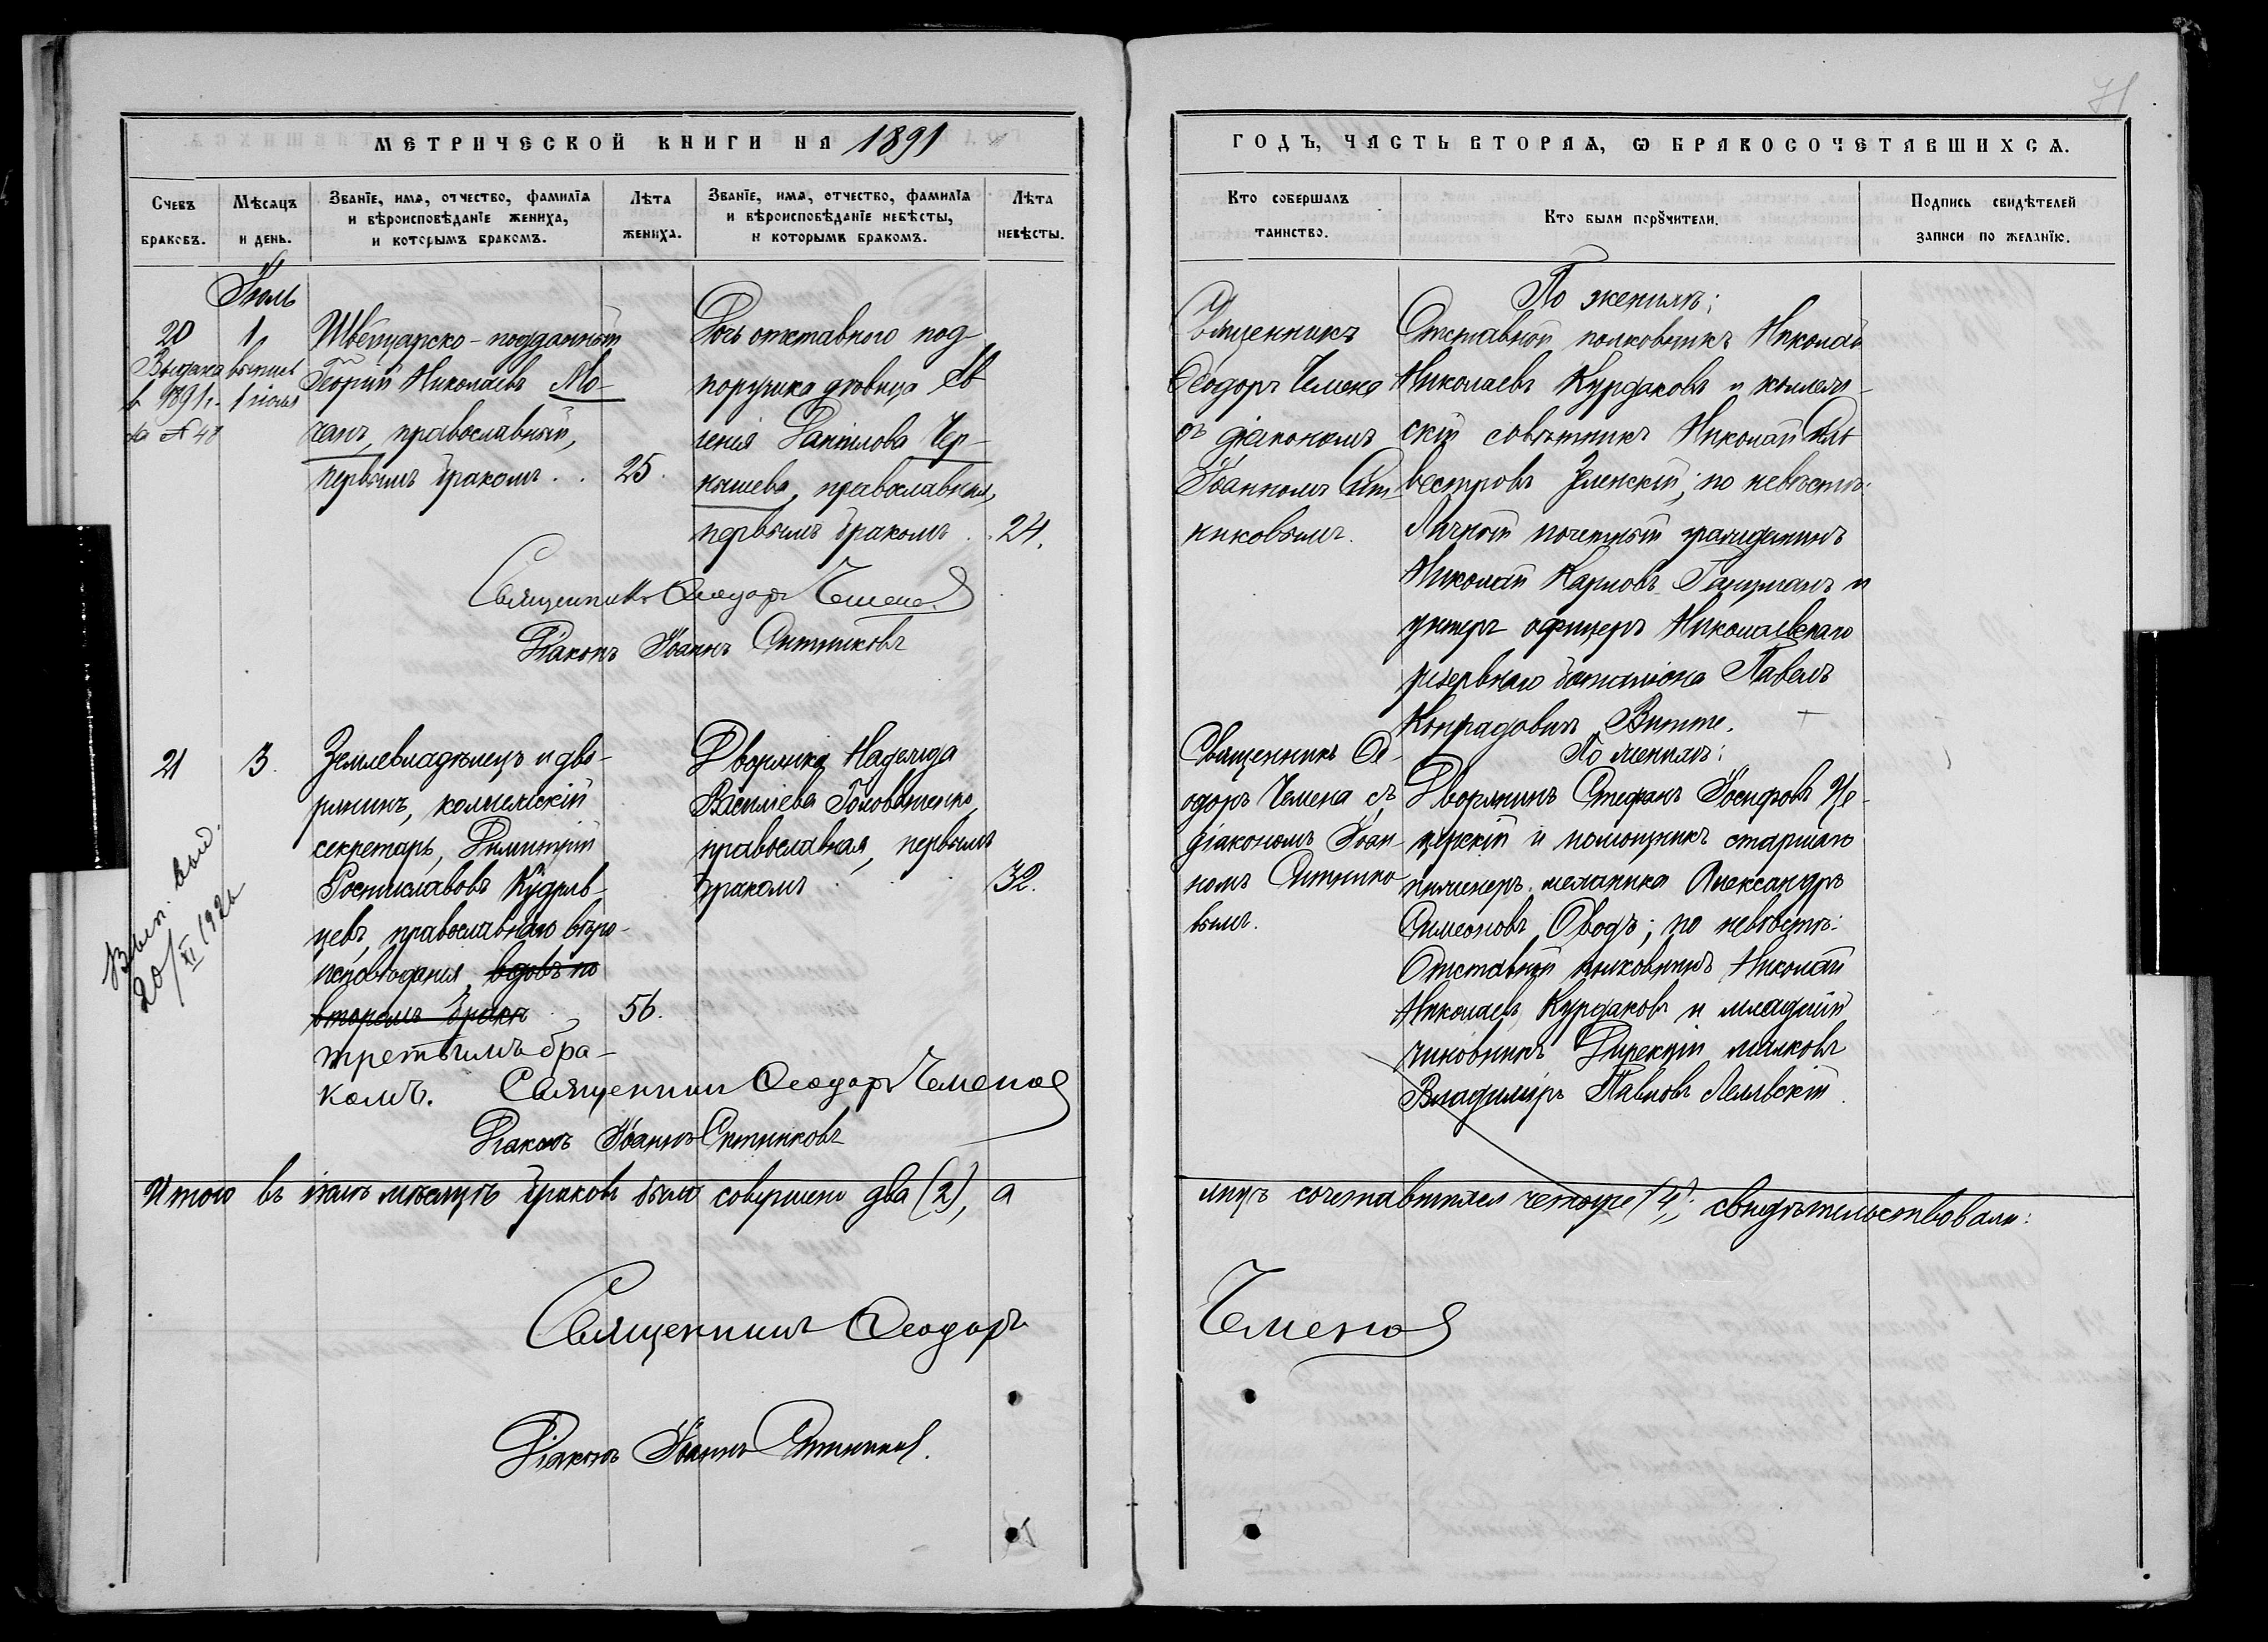 71
МЕТРИЧЕСКОЙ КНИГИ НА 1891
ГОДЪ, ЧАСТЬ ВТОРАЯ, Ѡ БРАКОСОЧЕТАВШИХСЯ.
Счетъ браковъ.
Мѣсяцъ и день.
Званіе, имя, отчество, фамилія
и вѣроисповѣданіе жениха,
и которымъ бракомъ.
Лѣта жениха.
Званіе, имя, отчество, фамилія
и вѣроисповѣданіе невѣсты,
и которымъ бракомъ.
Лѣта невѣсты.
Кто совершалъ
таинство.
Кто были поручители.
Подпись свидѣтелей
записи по желанію.
Іюль
20 1
Выдана выпись
въ 1891 г. 1 іюля
за № 48
Швейцарско-подданный
Георгій Николаевъ Мо-
ханъ, православный,
первымъ бракомъ . . 25.
Дочь отставного под-
поручика дѣвица Ев
генія Даніилова Чер-
нышева, православная,
первымъ бракомъ . . 24.
Священникъ
Ѳеодоръ Чемена
съ діакономъ
Іоанномъ Сит-
никовымъ.
По женихѣ:
Отставной полковникъ Николай
Николаевъ Курдаковъ и коллеж-
скій совѣтникъ Николай Силь
вестровъ Зленскій; по невѣстѣ:
Личный почетный гражданинъ
Николай Карловъ Ганцманъ и
унтеръ офицеръ Николаевскаго
резервнаго баталіона Павелъ
Конрадовичъ Витте.
Священникъ Ѳеодоръ Чемена
Діаконъ Іоаннъ Ситниковъ
21 3.
Вып. выд.
20/XI 1926
Землевладѣлецъ и дво-
рянинъ, коллежскій
секретарь, Димитрій
Ростиславовъ Кудряв-
цевъ, православнаго вѣро-
исповѣданія, вдовъ по
второмъ бракѣ 56.
третьимъ бра-
комъ.
Дворянка Надежда
Василіева Головатенко,
православная, первымъ
бракомъ . . . 32.
Священникъ Ѳе-
одоръ Чемена съ
діакономъ Іоан-
номъ Ситнико-
вымъ.
По женихѣ:
Дворянинъ Стефанъ Іосифовъ Це-
церскій и помощникъ старшаго
инженеръ-механика Александръ
Симеоновъ Оводъ; по невѣстѣ:
Отставной полковникъ Николай
Николаевъ Курдаковъ и младшій
чиновникъ Дирекціи маяковъ
Владиміръ Павловъ Лелявскій.
Священникъ Ѳеодоръ Чемена
Діаконъ Іоаннъ Ситниковъ
Итого въ іюлѣ мѣсяцѣ браковъ было совершено два (2), а
лицъ сочетавшихся четыре (4); свидѣтельствовали:
Священникъ Ѳеодоръ
Чемена
Діаконъ Іоаннъ Ситниковъ.